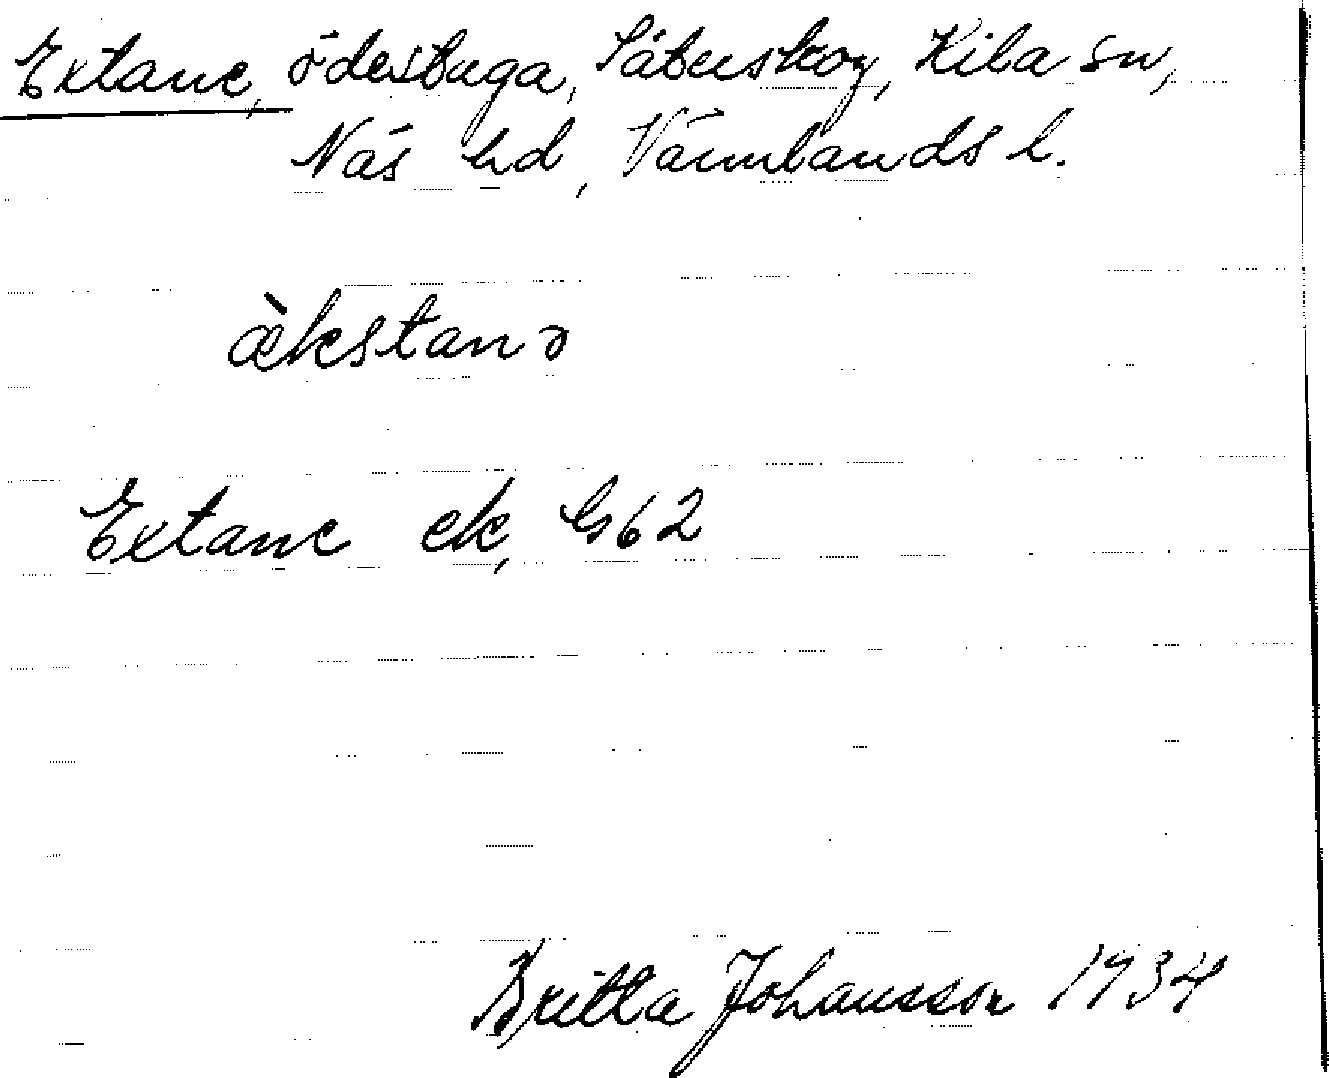 Extane, ödestuga, Säterskog, Kila sn,
Näs hd, Värmlands l.
æ̀kstanə
Extane ek, G62
Britta Johansson 1934